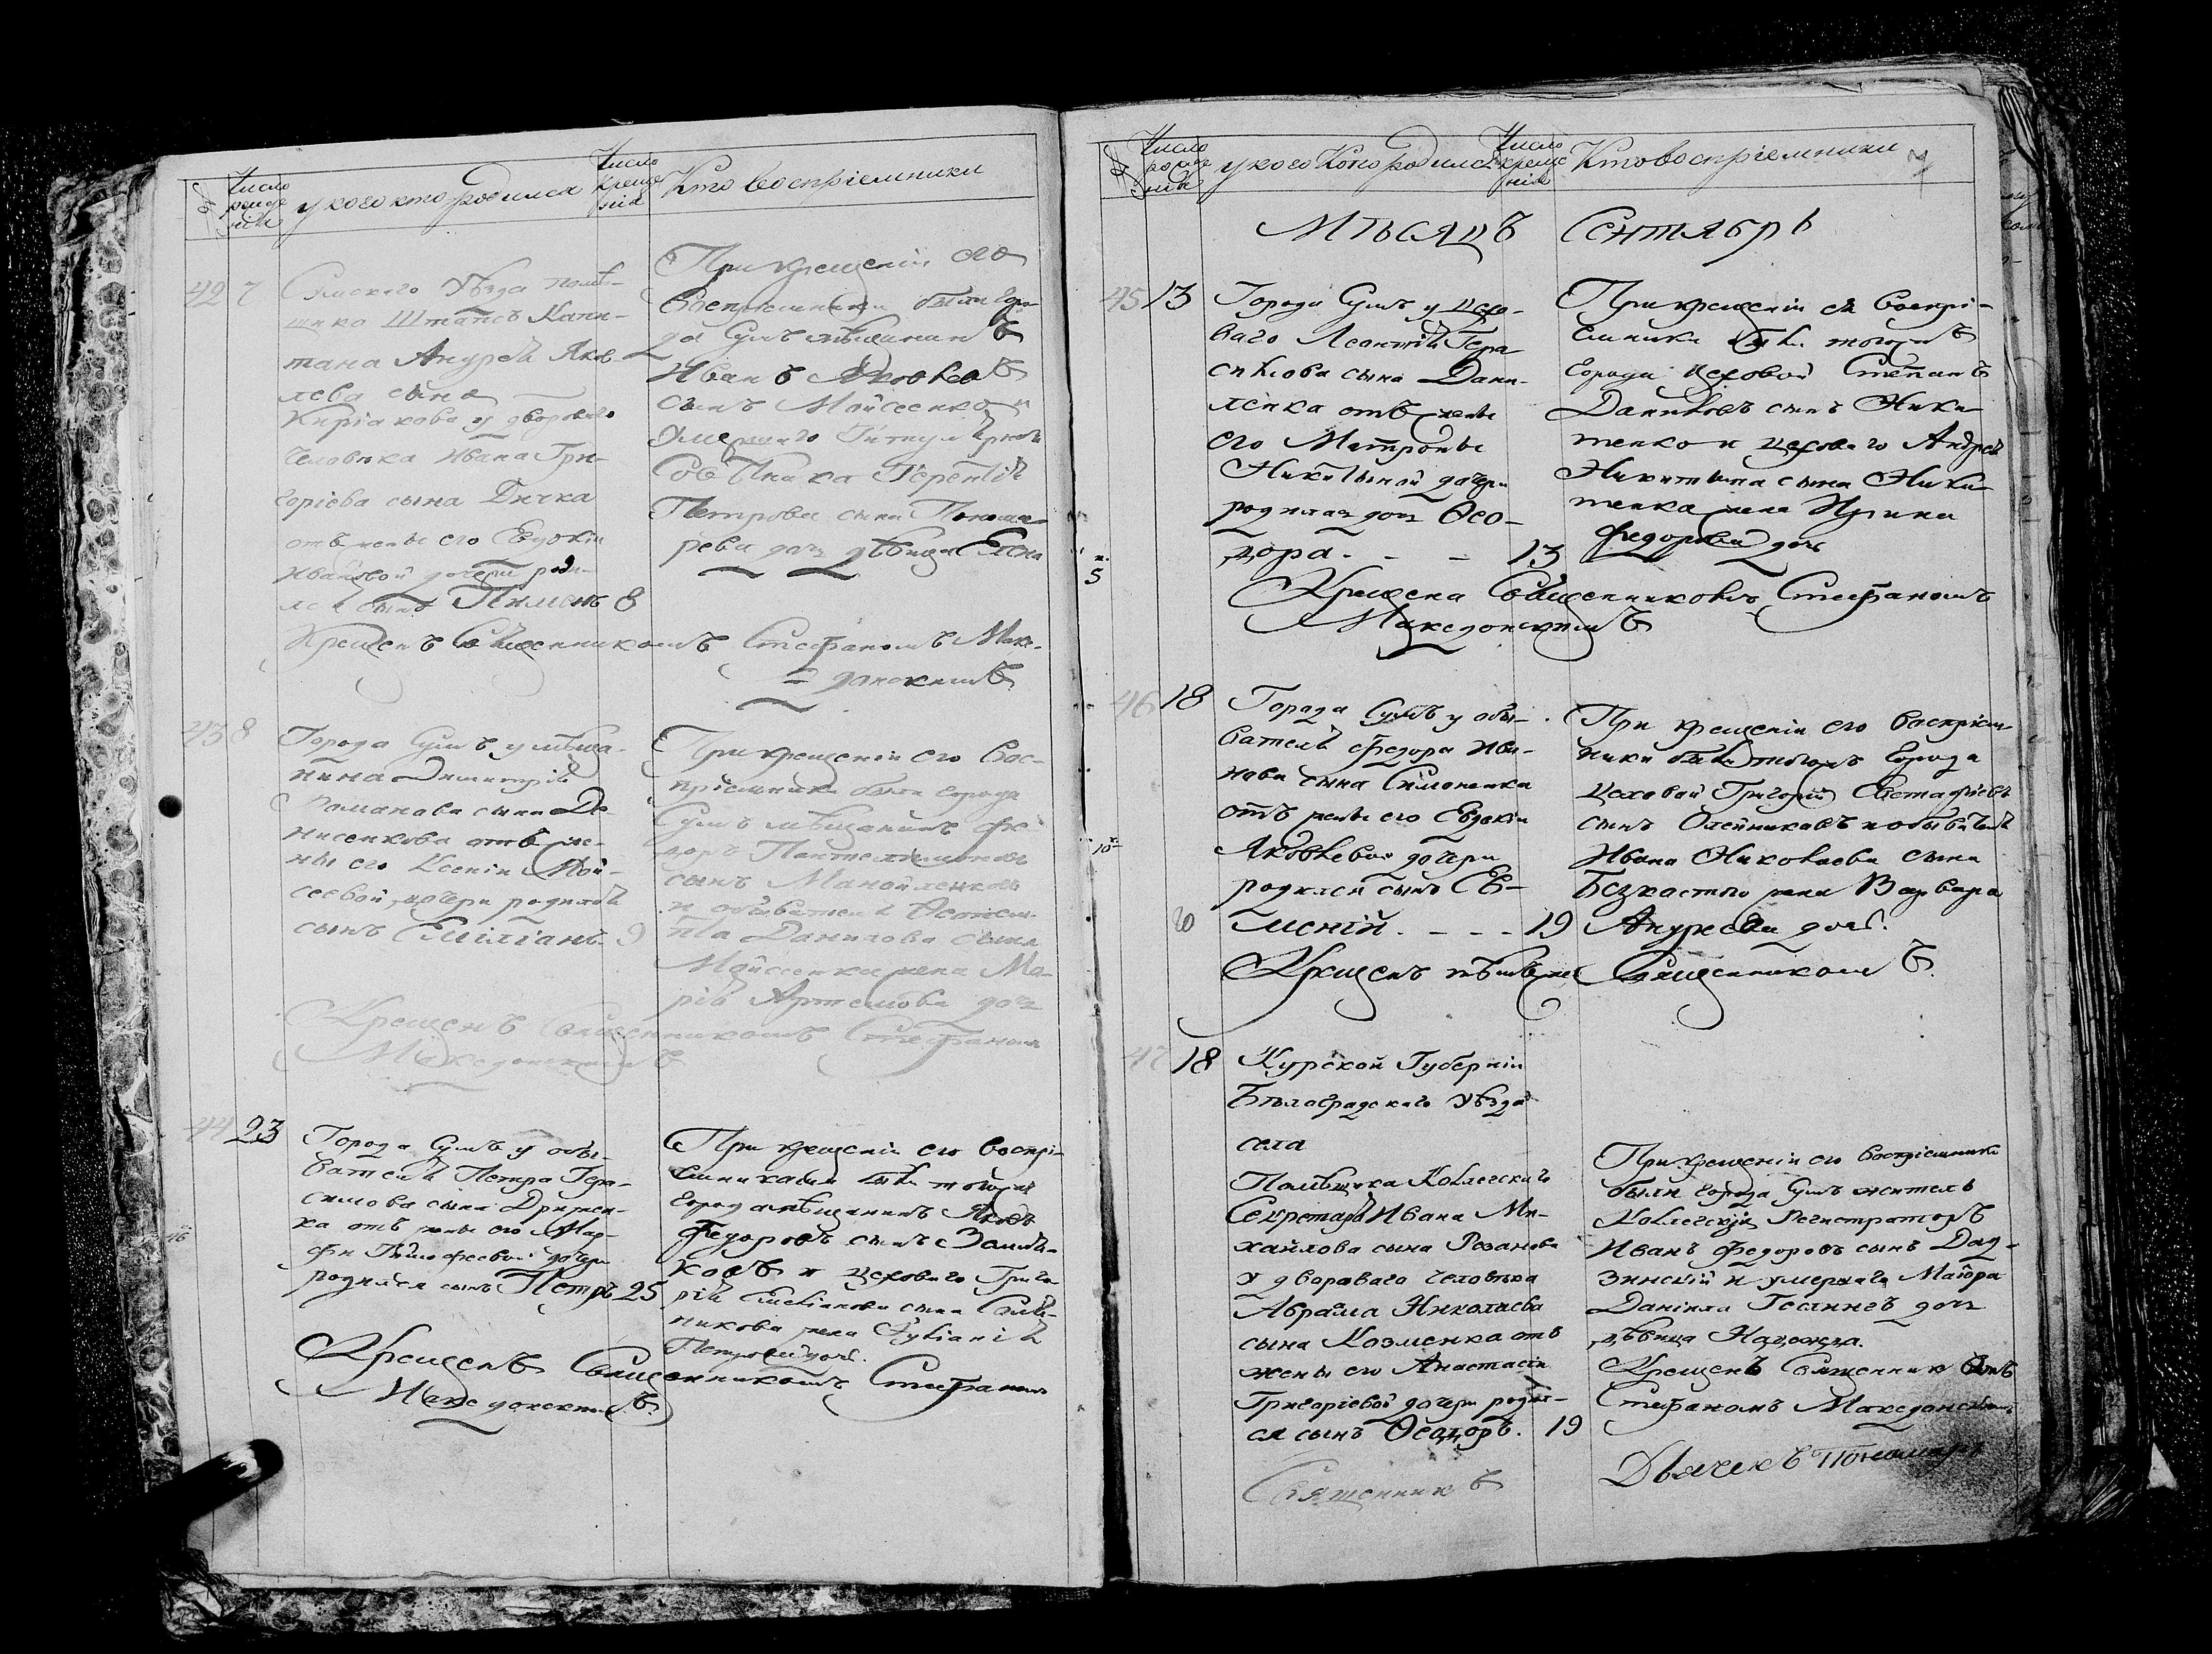 №
Число рождения
у кого кто родился
Число крещенія
Кто воспріемники
42 7
Сумского уѣзда помѣ-
щика Штапсъ Капи-
тана Андрея Яков-
лева сына
Киріакова у двороваго
человѣка Ивана Гри-
горіева сына Бычка
отъ жены его Евдокіи
Ивановой дочери роди-
лся сынъ Пименъ 8
При крещеніи его
воспріемники были горо-
да Сумъ мѣщанинъ
Иванъ Яковлевъ
сынъ Мойсеенко и
умершаго Титулярнаго
Совѣтника Терентія
Петрова сына Понома-
рева дочь дѣвица Елена
Крещенъ Священникомъ Стефаномъ Маке-
= донскимъ
43 8
Города Сумъ у мѣща-
нина Димитрія
Романова сына Де-
нисенкова отъ же-
ны его Ксеніи Мой-
сеевой дочери родился
сынъ Емиліанъ 9
При крещеніи его вос-
пріемники были города
Сумъ мѣщанинъ Фе-
доръ Пантелимоновъ
сынъ Манойленковъ
и обывателя
Данилова сына
Мойсеенка жена Ма-
рія Артемова дочь
Крещенъ Священникомъ Стефаномъ
Македонскимъ
44 23
Города Сумъ у обы-
вателя Петра Гера-
симова сына
отъ жены его Мар-
фы Тимофеевой дочери
родился сынъ Петръ 25
При крещеніи его воспрі-
емниками были тогожъ
города мѣщанинъ Яковъ
Федоровъ сынъ
и цеховаго Григо-
рія Емеліанова сына
жена Іуліанія
Петрова дочь.
Крещенъ Священникомъ Стефаномъ
Македонскимъ.
№
Число рожденія
у кого кто родился
Число крещенія
Кто воспріемники
7
Мѣсяцъ Сентябрь
45 13
Города Сумъ у цехо-
ваго Леонтія Гера-
симова сына Дани-
ленка отъ жены
его Матроны
Никитиной дочери
родилась дочь Ѳео-
дора. - - 13
При крещеніи ея воспрі-
емники были тогожъ
города цеховой Степанъ
Даниловъ сынъ Ники-
тенко и цеховаго Андрея
Никитина сына Ники-
тенка жена Ирина
Федорова дочь
Крещена Священникомъ Стефаномъ
Македонскимъ
46 18
Города Сумъ у обы-
вателя Федора Ива-
нова сына Симоненка
отъ жены его Евдокіи
Яковлевой дочери
родился сынъ Ев-
меній. - - - 19
При крещеніи его воспріем-
ники были тогожъ города
цеховой Григорій Евстафіевъ
сынъ Олейниковъ и обывателя
Ивана Николаева сына
Безкостого жена Варвара
Андреева дочь.
Крещенъ тѣмъ же Священникомъ.
47 18
Курской Губерніи
Бѣлоградскаго уѣзда
села
Помѣщика Коллегскаго
Секретаря Ивана Ми-
хайлова сына Резанова
у двороваго человѣка
Абрама Николаева
сына Козменка отъ
жены его Анастасіи
Григоріевой дочери родил-
ся сынъ Ѳеодоръ. 19
При крещеніи его воспріемники
были города Сумъ житель
Коллегскій Регистраторъ
Иванъ Федоровъ сынъ Дад-
зинскій и умершаго Маіора
Даніила дочь
дѣвица Надежда.
Крещенъ Священникомъ
Стефаномъ Македонскимъ
Священникъ
Дьячекъ Пономарь